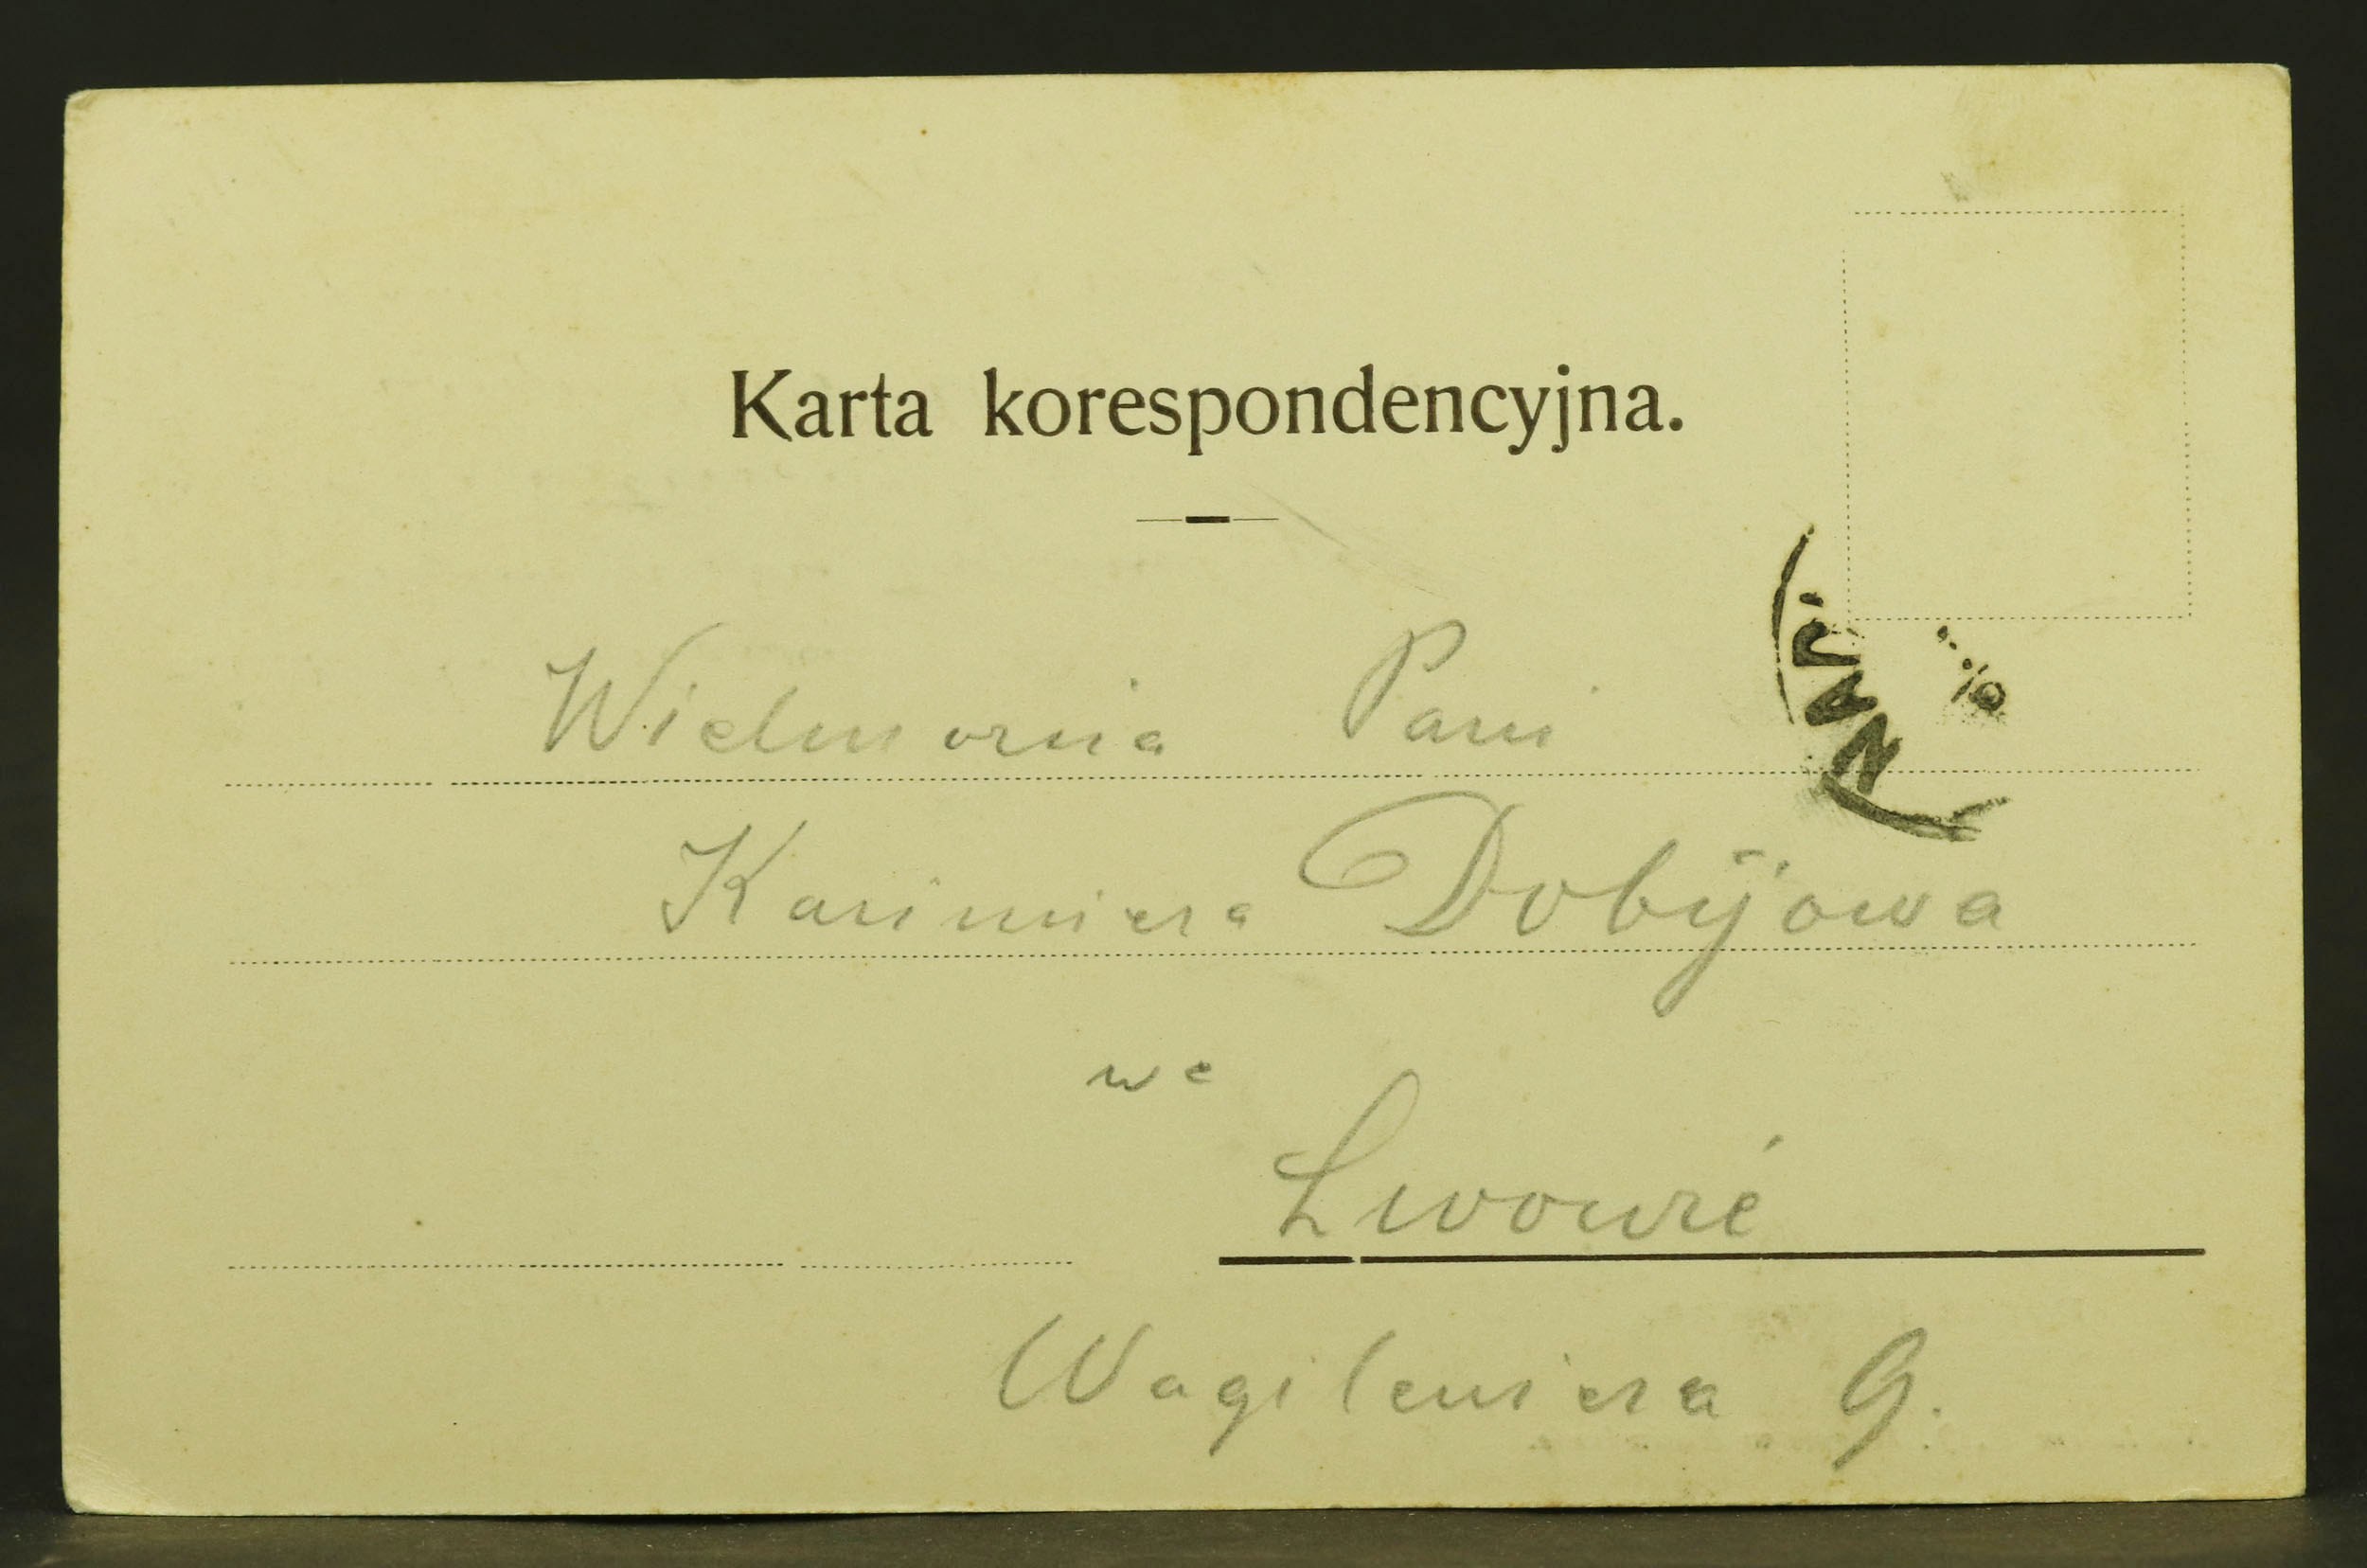 Karta korespondencyjna.
Wielmornia Pani
Kazimiera Dobijowa
we
Lwowie
Wagileviera 9.